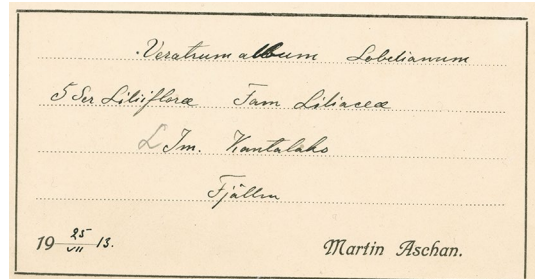 Veratrum album Lobelianum
5 Ser Liliifloræ Fam Liliaceæ
L Im. Kantalaks
Fjällen
19 25/VII 13. Martin Aschan.